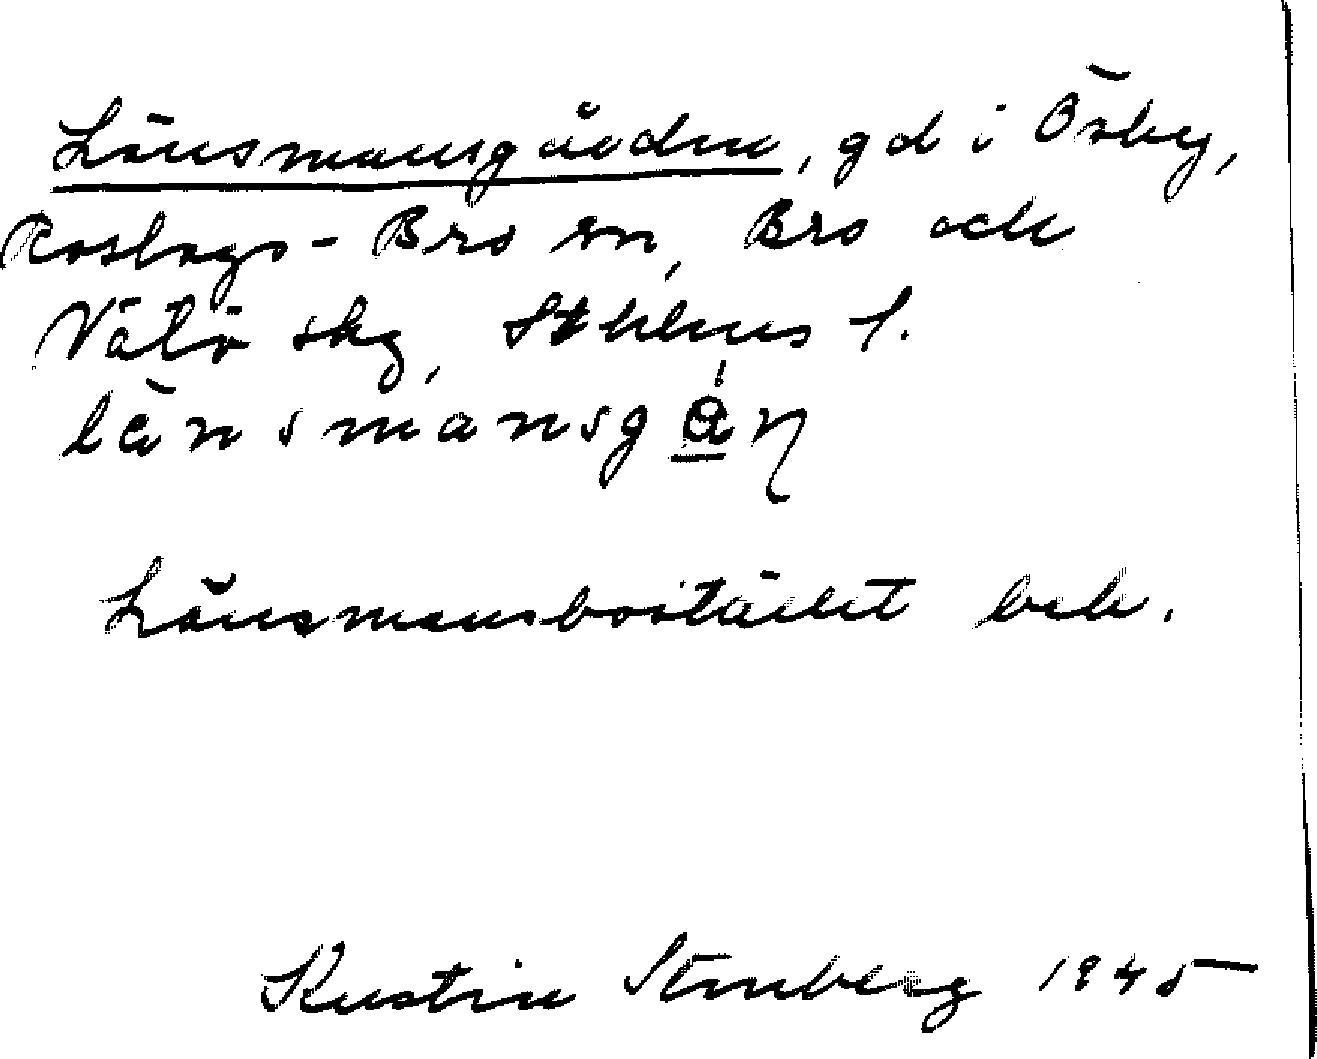 Länsmansgården, gd i Ösby,
Roslags-Bro sn, Bro och
Vätö skg, Sthlms l.
länsmansgån
Länsmansbostället bek.
Kerstin Stenberg 1945